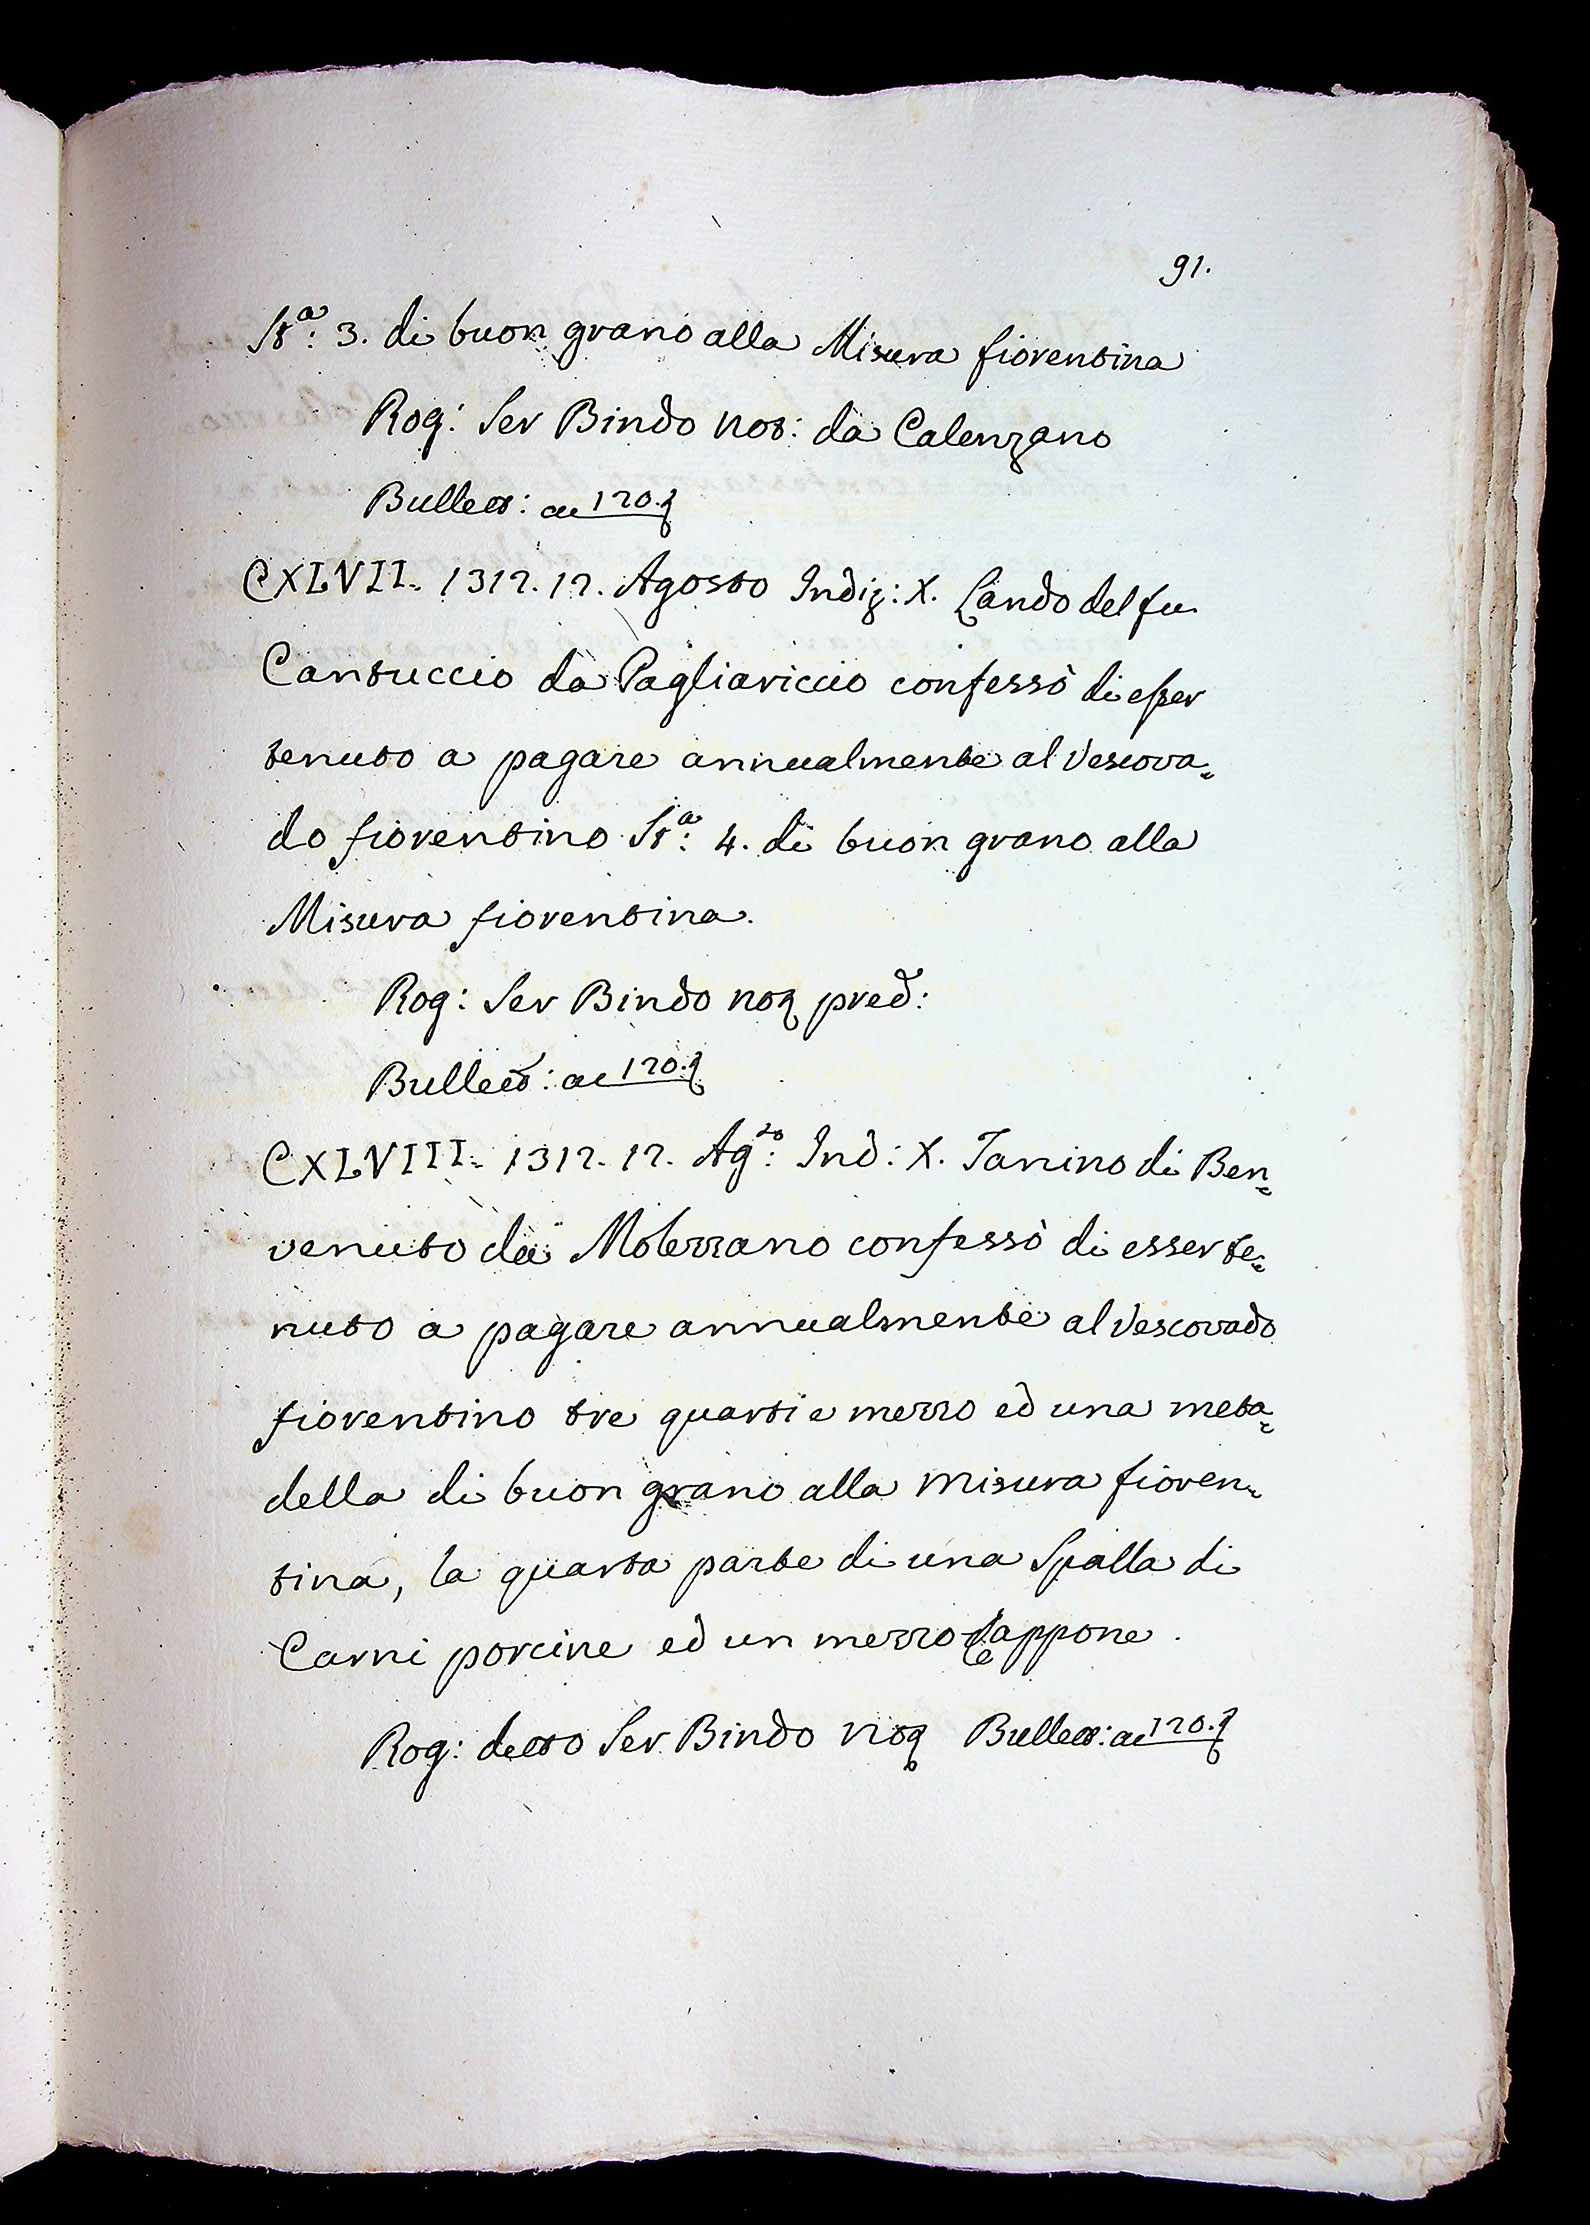 91.
Sta: 3. di buon grano alla Misura fiorentina
Rog: Ser Bindo not: da Calenzano
Bullett: ac 120.
CXLVII. 1312. 12. Agosto Indiz: X. Lando del fu
Cantuccio da Pagliariccio confessò di esser
tenuto a pagare annualmente al Vescova=
do fiorentino Sta: 4. di buon grano alla
Misura fiorentina.
Rog: Ser Bindo not pred:
Bullett: ac 120.
CXLVIII. 1312. 12. Agto: Ind: X. Tanino di Ben=
venuto da Molezzano confessò di esser te=
nuto a pagare annualmente al Vescovado
fiorentino tre quarti e mezzo ed una meta=
della di buon grano alla misura fioren=
tina, la quarta parte di una Spalla di
Carni porcine ed un mezzo Cappone.
Rog: detto Ser Bindo not Bullett: ac 120.